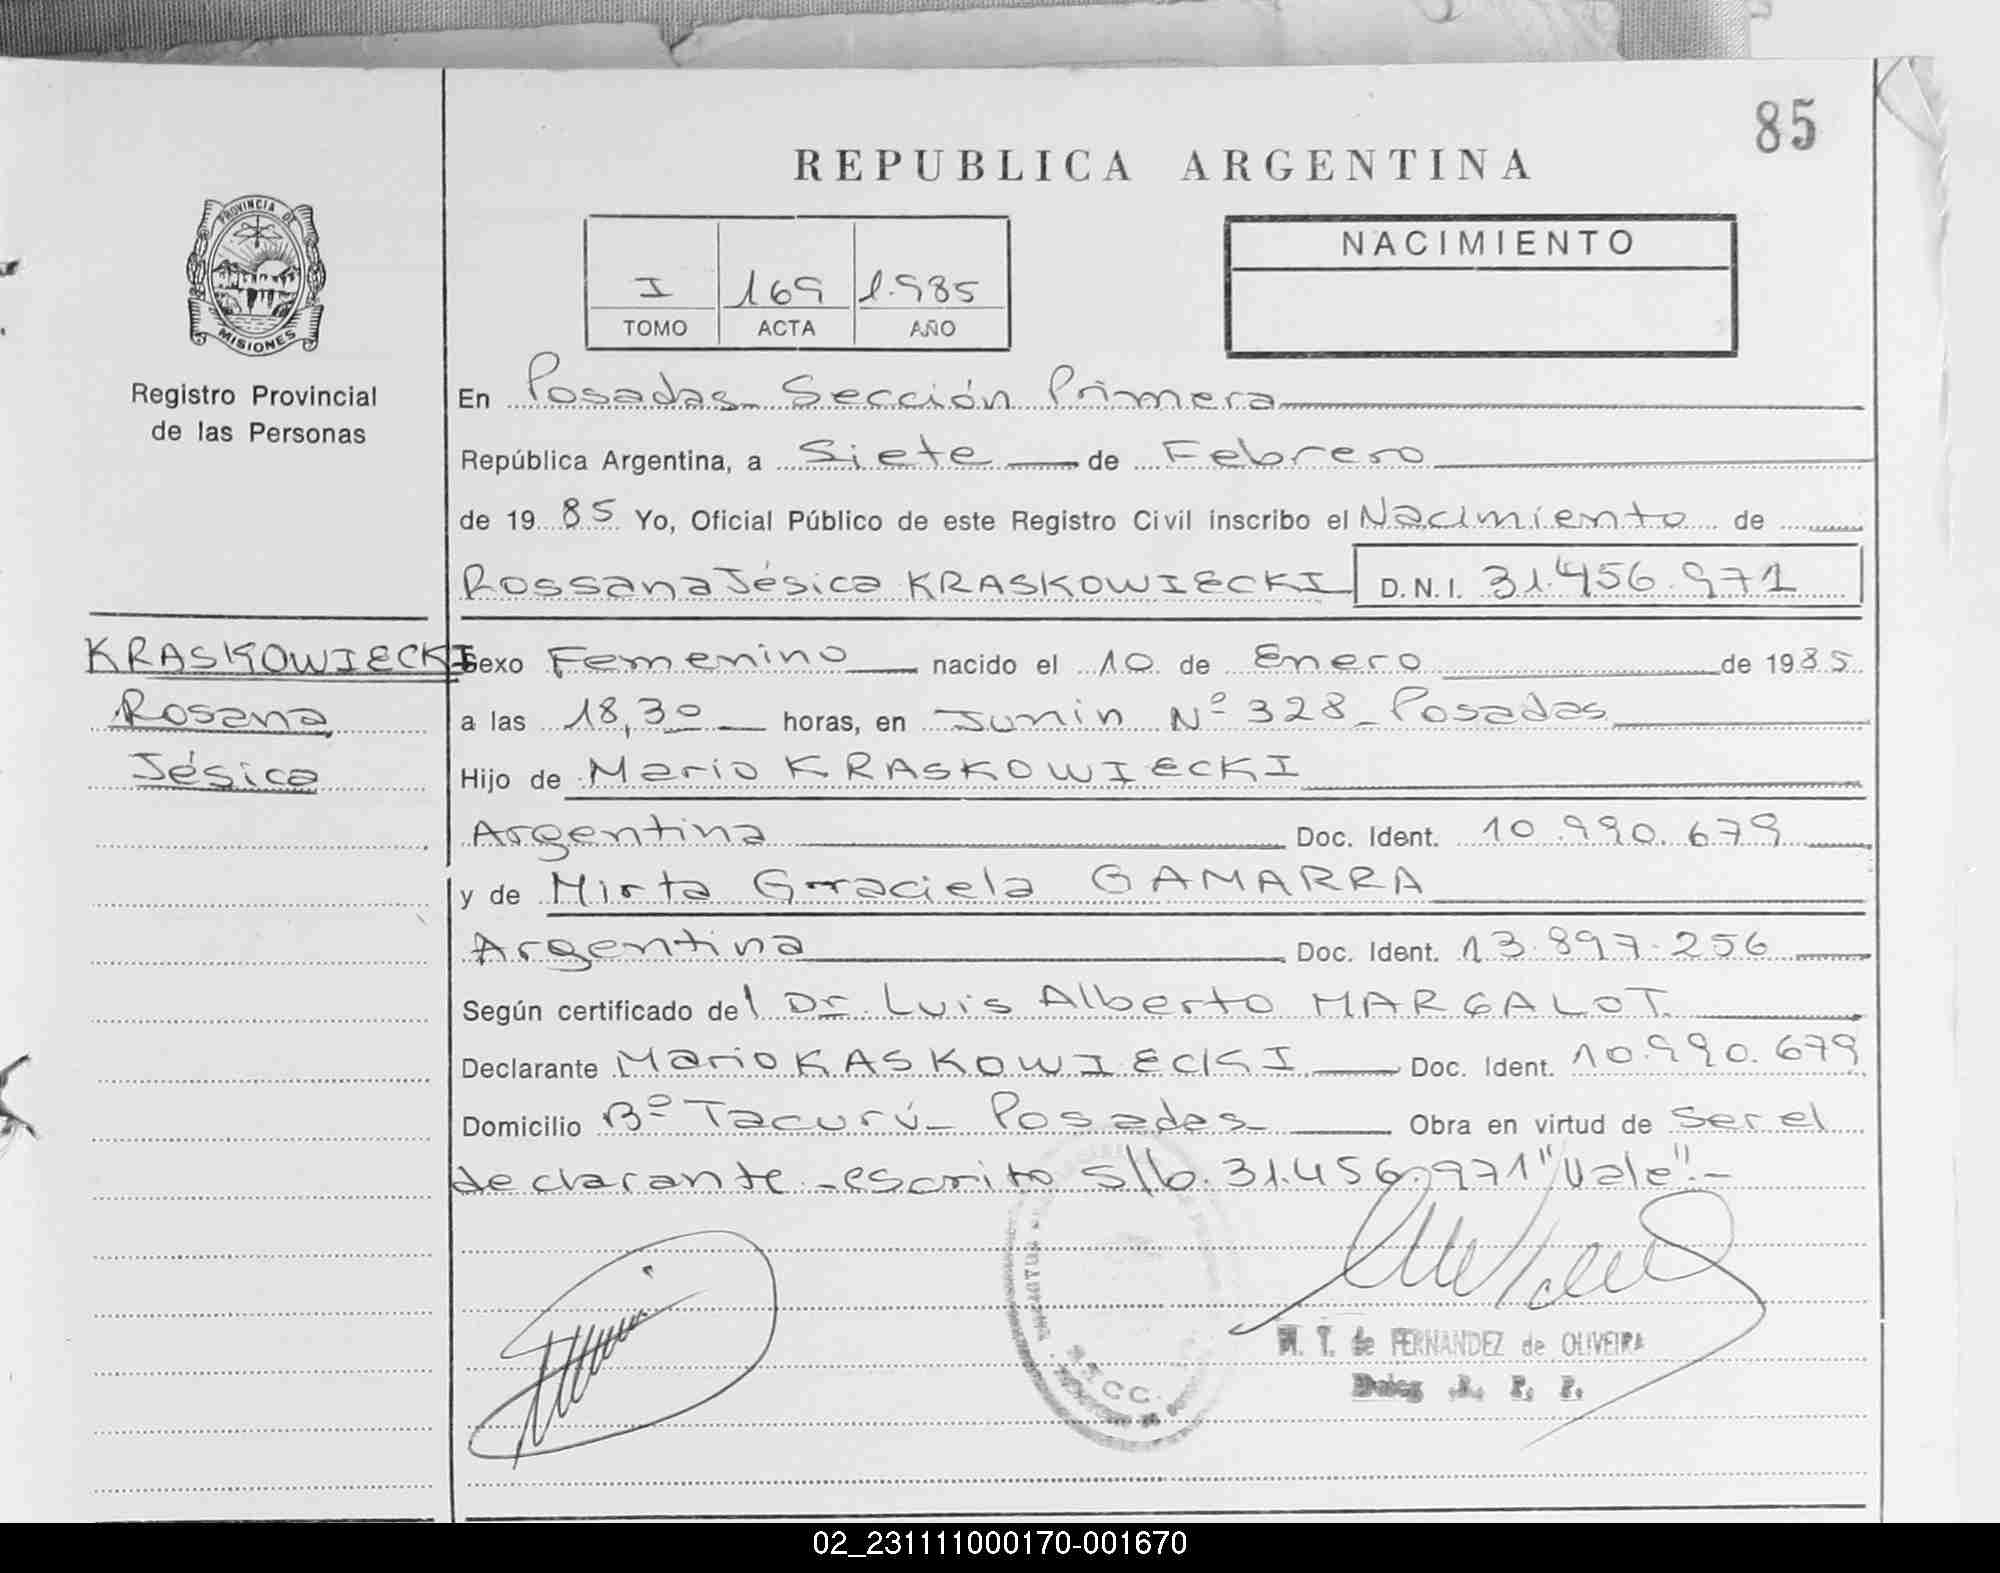 85
REPUBLICA ARGENTINA
PROVINCIA DE
MISIONES
Registro Provincial
de las Personas
I 169 1.985
TOMO ACTA AÑO
NACIMIENTO
En Posadas - Sección Primera
República Argentina, a Siete de Febrero
de 1985 Yo, Oficial Público de este Registro Civil inscribo el Nacimiento de
Rossana Jésica KRASKOWIECKI D.N.I. 31.456.971
KRASKOWIECKI
Rosana
Jésica
Sexo Femenino nacido el 10 de Enero de 1985
a las 18,30 horas, en Junin Nº 328 - Posadas
Hijo de Mario KRASKOWIECKI
Argentina Doc. Ident. 10.990.679
y de Mirta Graciela GAMARRA
Argentina Doc. Ident. 13.897.256
Según certificado del Dr. Luis Alberto MARGALOT.
Declarante Mario KASKOWIECKI Doc. Ident. 10.990.679
Domicilio Bº Tacurú - Posadas - Obra en virtud de ser el
declarante - escrito s/b. 31.456.971 "Vale".-
R. CC.
M. T. de FERNANDEZ de OLIVEIRA
R. P. P.
02_231111000170-001670